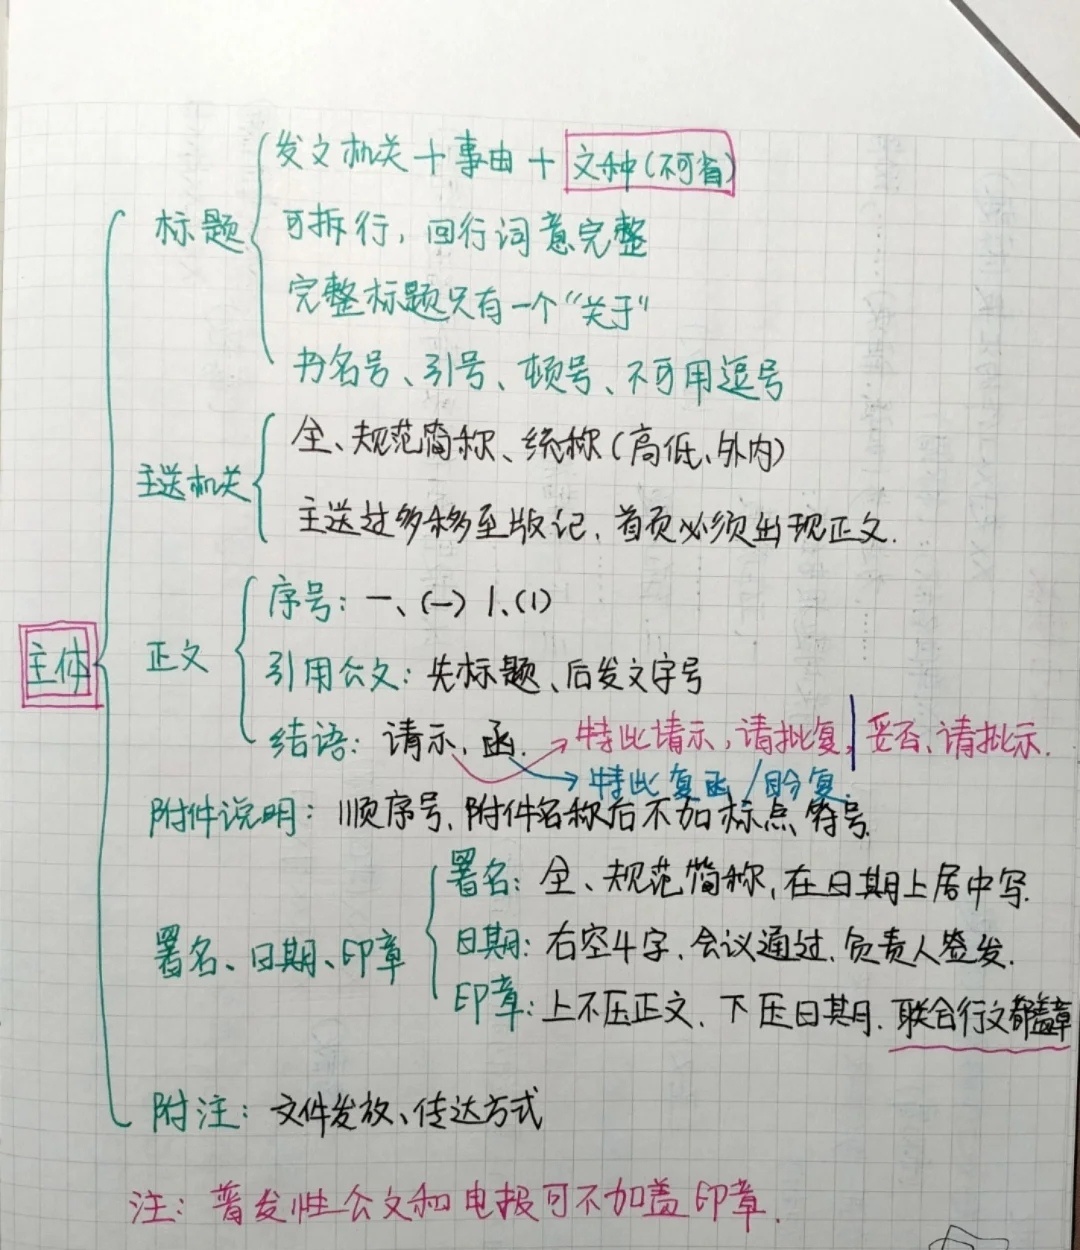 发文机关+事由+文种(不可省)
标题
可拆行,回行词意完整
完整标题只有一个"关于"
书名号、引号、顿号、不可用逗号
全、规范简称、统称(高低、外内)
主送机关
主送过多移至版记,首页必须出现正文.
序号:一、(一) 1、(1)
主体
正文
引用公文:先标题、后发文字号
结语:请示、函. 特此请示,请批复,|妥否、请批示.
特此复函/盼复.
附件说明:顺序号、附件名称后不加标点符号.
署名:全、规范简称,在日期上居中写.
署名、日期、印章
日期:右空4字,会议通过,负责人签发.
印章:上不压正文、下压日期.联合行文都盖章
附注:文件发放、传达方式
注:普发性公文和电报可不加盖印章.